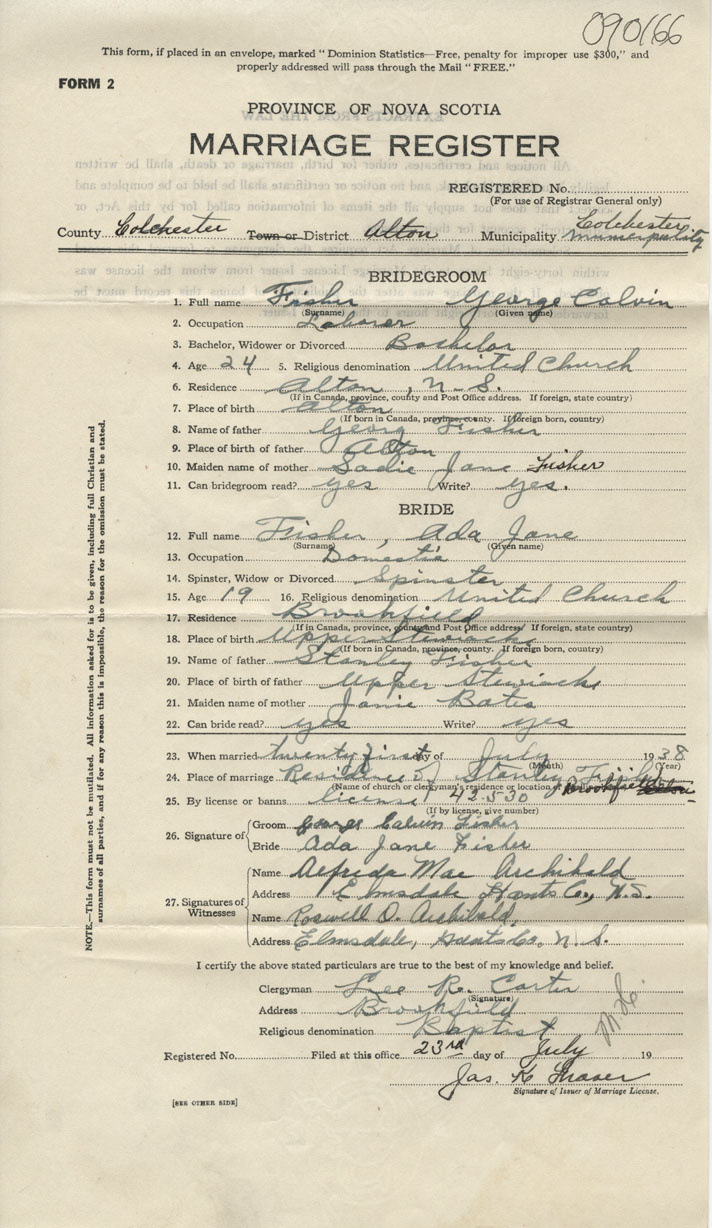 090166
This form, if placed in an envelope, marked "Dominion Statistics—Free, penalty for improper use $300," and
properly addressed will pass through the Mail "FREE."
FORM 2
PROVINCE OF NOVA SCOTIA
MARRIAGE REGISTER
REGISTERED No.
(For use of Registrar General only)
County Colchester Town or District Alton Municipality Colchester Municipality
BRIDEGROOM
1. Full name Fisher George Calvin
(Surname) (Given name)
2. Occupation Laborer
3. Bachelor, Widower or Divorced Bachelor
4. Age 24 5. Religious denomination United Church
6. Residence Alton, N.S.
(If in Canada, province, county and Post Office address. If foreign, state country)
7. Place of birth Alton
(If born in Canada, province, county. If foreign born, country)
8. Name of father Georg Fisher
9. Place of birth of father Alton
10. Maiden name of mother Sadie Jane Fisher
11. Can bridegroom read? yes Write? yes.
BRIDE
12. Full name Fisher, Ada Jane
(Surname) (Given name)
13. Occupation Domestic
14. Spinster, Widow or Divorced Spinster
15. Age 19 16. Religious denomination United Church
17. Residence Brookfield
(If in Canada, province, county and Post Office address. If foreign, state country)
18. Place of birth Upper Stewiacke
(If born in Canada, province, county. If foreign born, country)
19. Name of father Stanley Fisher
20. Place of birth of father Upper Stewiacke
21. Maiden name of mother Janie Bates
22. Can bride read? yes Write? yes
23. When married twenty first day of July 1938
(Month) (Year)
24. Place of marriage Residence of Stanley Fisher
(Name of church or clergyman's residence or location of Brookfield
25. By license or banns license 42530
(If by license, give number)
26. Signature of
Groom George Calvin Fisher
Bride Ada Jane Fisher
27. Signatures of Witnesses
Name Alfreda Mae Archibald
Address Elmsdale Hants Co., N.S.
Name Roswell O. Archibald,
Address Elmsdale, Hants Co, N.S.
I certify the above stated particulars are true to the best of my knowledge and belief.
Clergyman Lee R. Carter
(Signature)
Address Brookfield
Religious denomination Baptist
Registered No. Filed at this office 23rd day of July 19
Jas. K Fraser
Signature of Issuer of Marriage License.
[SEE OTHER SIDE]
NOTE.—This form must not be mutilated. All information asked for is to be given, including full Christian and
surnames of all parties, and if for any reason this is impossible, the reason for the omission must be stated.